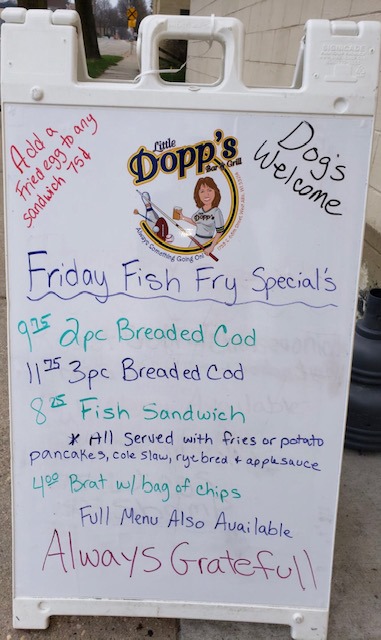 Add a
Fried egg to any
sandwich 75¢
Little
Dopp's
Bar & Grill
Dopp's
Always Something Going On!
Dog's
Welcome
Friday Fish Fry Special's
9 75 2pc Breaded Cod
11 75 3pc Breaded Cod
8 25 Fish Sandwich
* All Served with fries or potato
pancakes, cole slaw, rye bred + applesauce
4 00 Brat w/ bag of chips
Full Menu Also Available
Always Gratefull